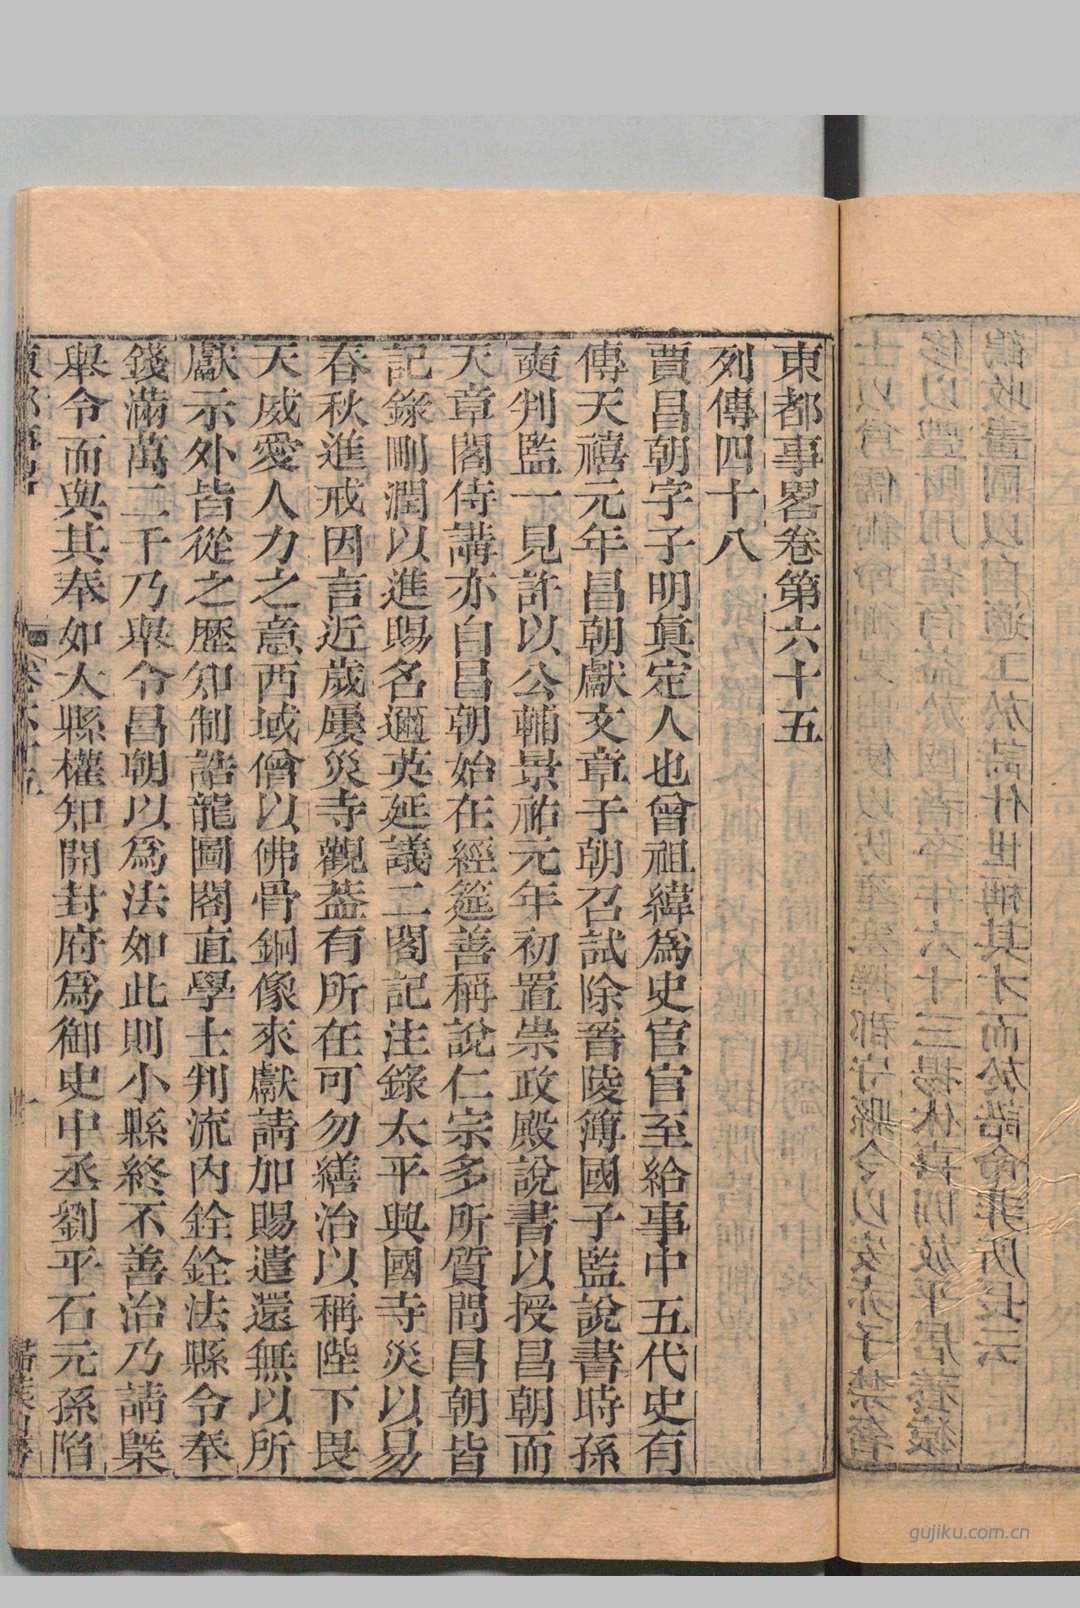 東都事畧卷第六十五
列傳四十八
賈昌朝字子明眞定人也曾祖緯爲史官官至給事中五代史有
傳天禧元年昌朝獻文章于朝召試除晉陵簿國子監說書時孫
奭判監一見許以公輔景祐元年初置崇政殿說書以授昌朝而
天章閣侍講亦自昌朝始在經筵善稱說仁宗多所質問昌朝皆
記錄刪潤以進賜名邇英延議二閣記注錄太平興國寺災以易
春秋進戒因言近歲屢災寺觀葢有所在可勿繕治以稱陛下畏
天威愛人力之意西域僧以佛骨銅像來獻請加賜遣還無以所
獻示外皆從之歷知制誥龍圖閣直學士判流內銓銓法縣令奉
錢滿萬二千乃舉令昌朝以爲法如此則小縣終不善治乃請槩
舉令而與其奉如大縣權知開封府爲御史中丞劉平石元孫陷
gujiku.com.cn